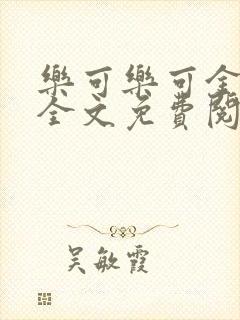 樂可樂可全
全文免費閱
吳敏霞